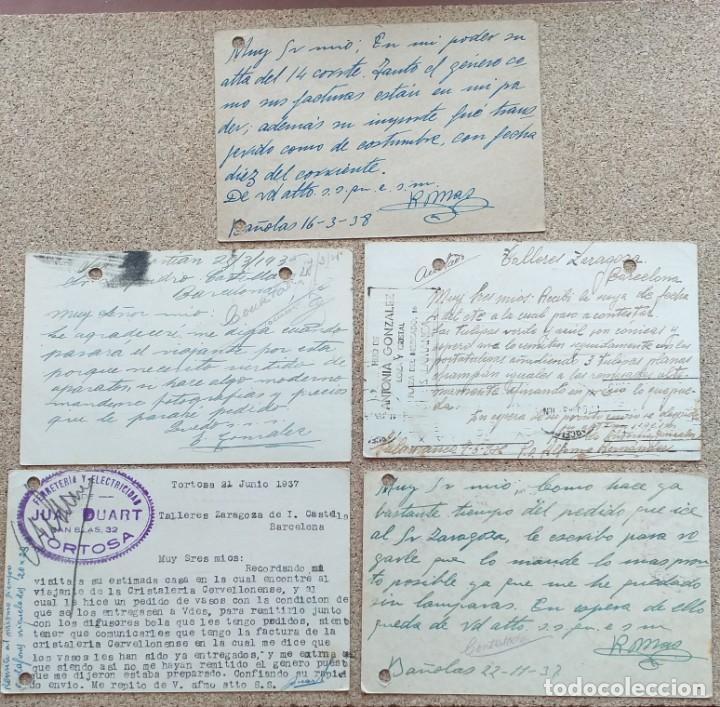 Muy Sr mio; En mi poder su
atta del 14 corrte. Tanto el género co
mo sus facturas están en mi po
der; además su importe fué trans
ferido como de costumbre, con fecha
diez del corriente.
De Vd atto. s.s. q. e. s. m.
R. Mas
Bañolas 16-3-38
Barcelona
Contestado
Muy señor mio:
le agradeceré me diga cuando
pasara el viajante por esta
porque necesito surtido de
aparatos, si hace algo moderno
mandeme fotografias y precios
que le pasaré pedido
Gonzalez
Talleres Zaragoza
Barcelona
Muy Sres mios: Recibí la suya de fecha
4 del cte a la cual paso a contestar.
Las tulipas verde y azul son conicas y
espero me las remitan seguidamente con los
portatulipas añadiendo 3 tulipas planas
HIJO DE
ANTONIA GONZALEZ
LOZA Y CRISTAL
PLAZA DEL MERCADO, 16
SALAMANCA
Salamanca
FERRETERIA Y ELECTRICIDAD
JUAN DUART
SAN BLAS, 32
TORTOSA
Tortosa 21 Junio 1937
Talleres Zaragoza de I. Castella
Barcelona
Muy Sres mios:
Recordando mi
visita a su estimada casa en la cual encontre al
viajante de la Cristaleria Cervellonense, y al
cual le hice un pedido de vasos con la condicion de
que se los entregasen a Vdes, para remitirlo junto
con los difusores bola que les tengo pedidos, siento
tener que comunicarles que tengo la factura de la
cristaleria Cervellonense en la cual me dice que
los vasos les han sido ya entregados, y me extraña
que siendo asi no me hayan remitido el genero pues
que me dijeron estaba preparado. Confiando su rapi
do envio. Me repito de V. afmo atto S.S.
Duart
Muy Sr mio: Como hace ya
bastante tiempo del pedido que hice
al Sr Zaragoza, le escribo para ro
garle que lo mande lo mas pron
to posible ya que me he quedado
sin lamparas. En espera de ello
queda de Vd atto. s.s. q. e. s m
Contestado
R. Mas
Bañolas 22-11-37
todocoleccion.net